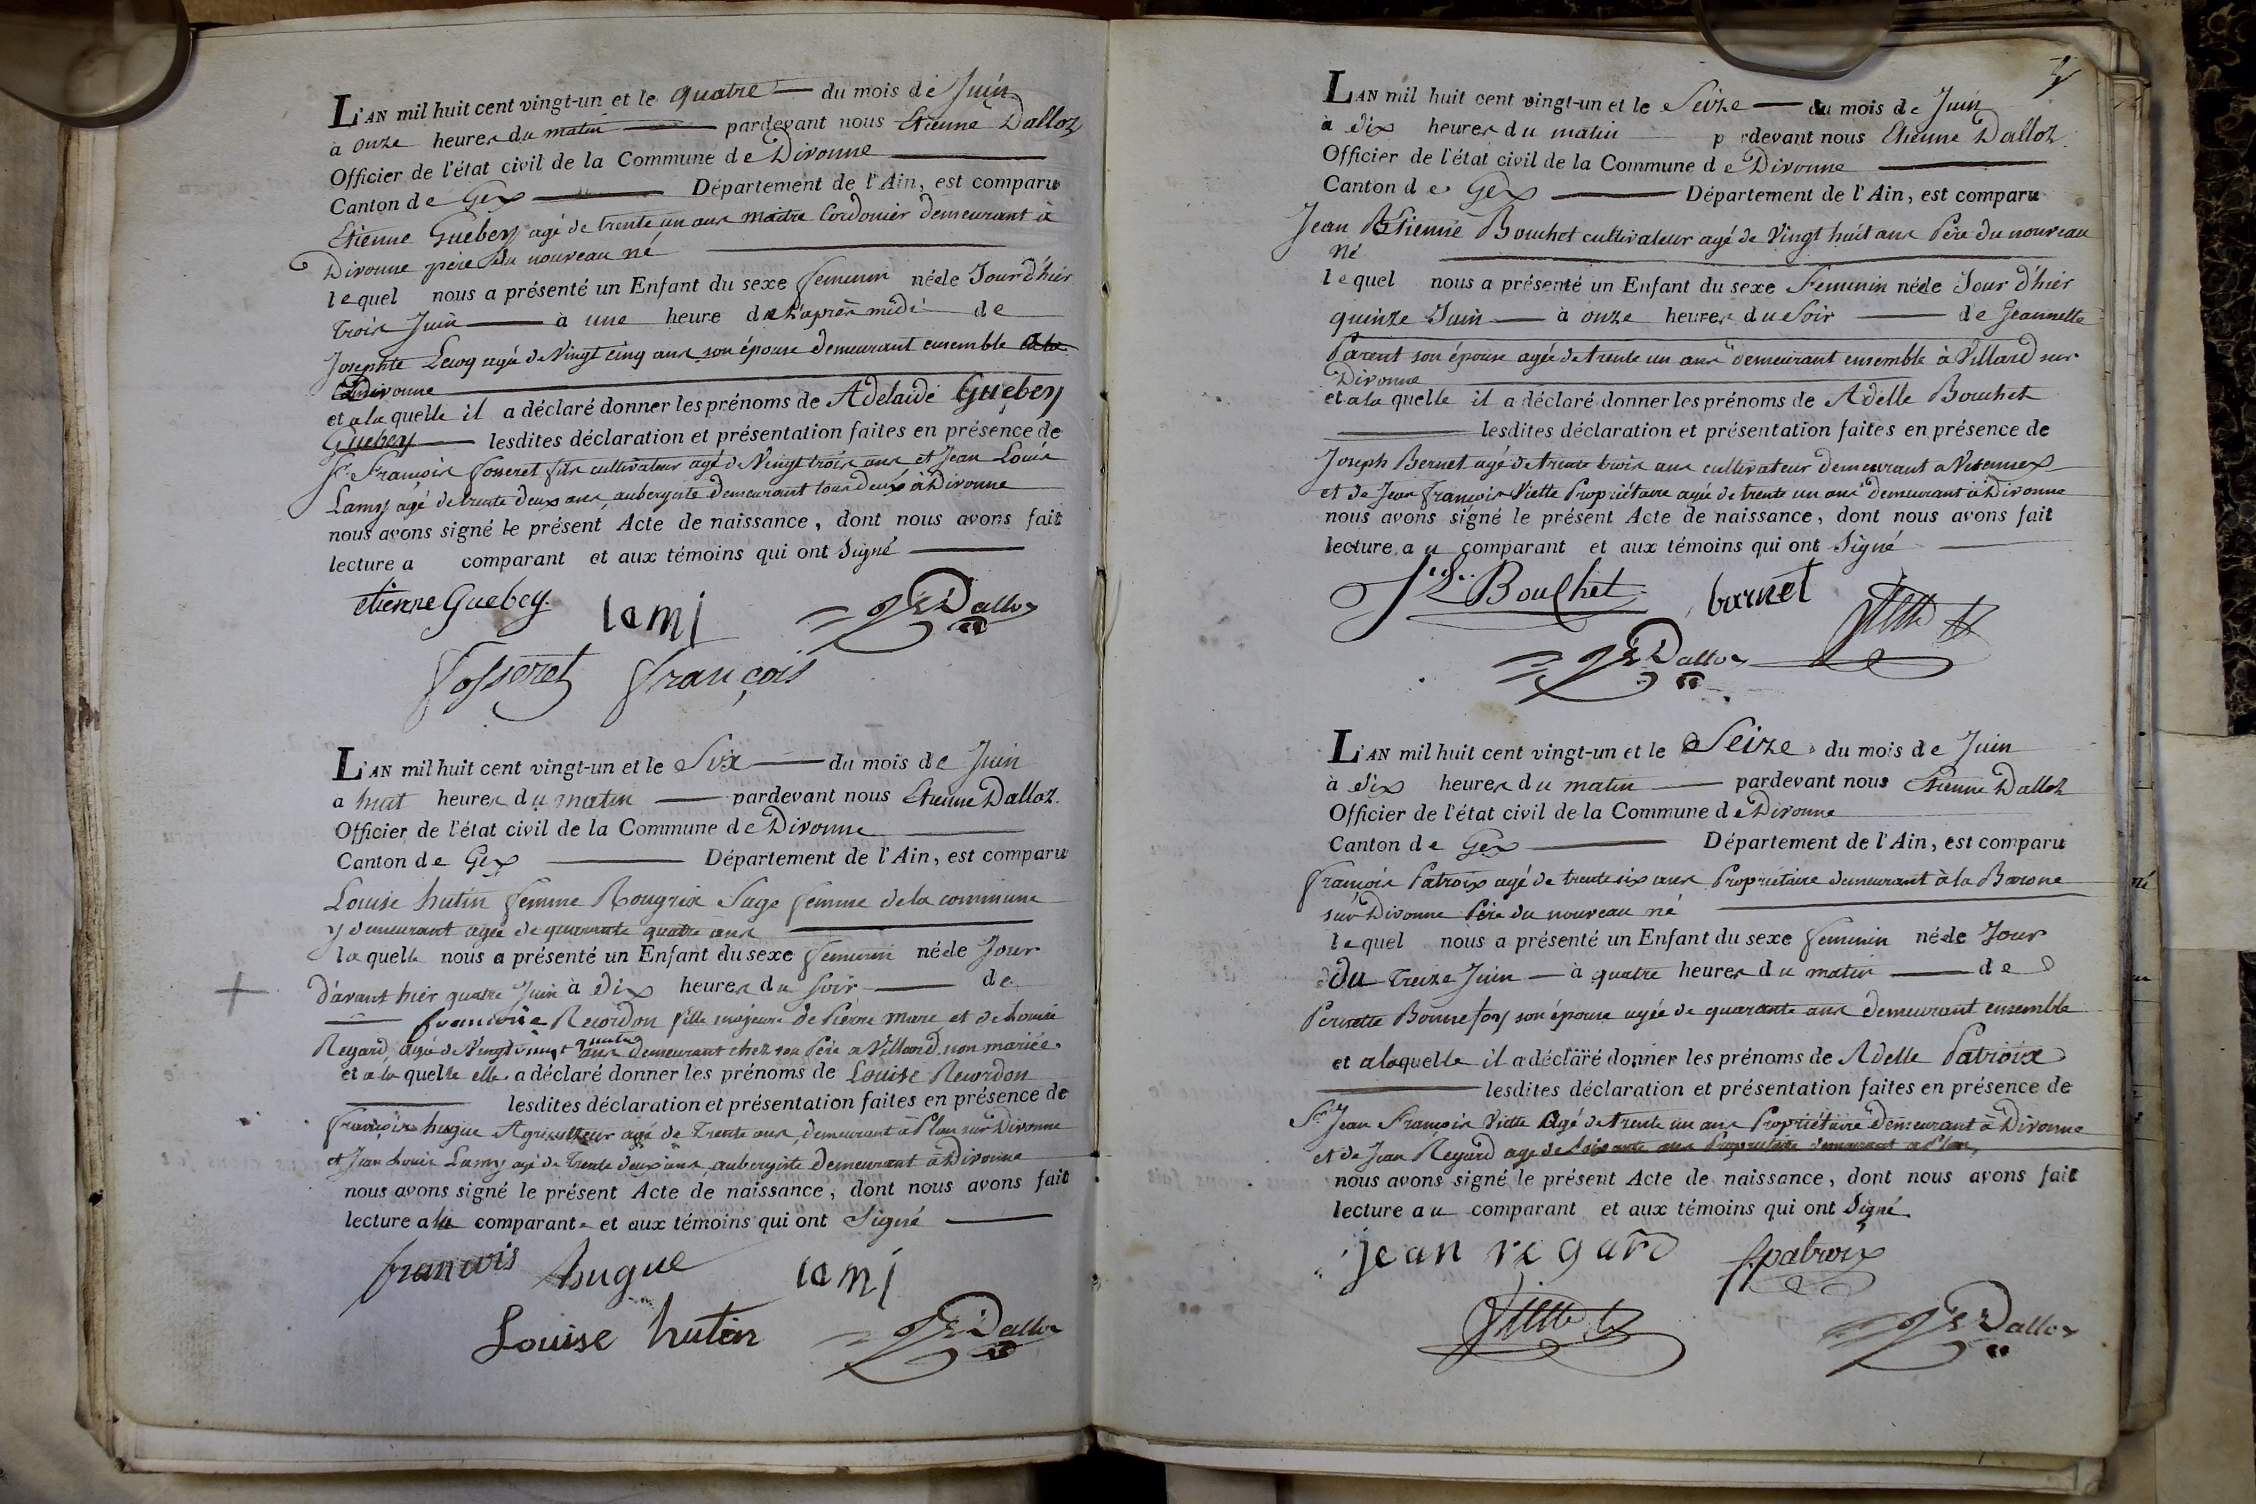 L'AN mil huit cent vingt-un et le quatre — du mois de Juin
à onze heures du matin — pardevant nous Etienne Dalloz
Officier de l'état civil de la Commune de Divonne
Canton de Gex — Département de l'Ain, est comparu
Etienne Guebey agé de trente un ans maitre Cordonier demeurant à
Divonne père du nouveau né
lequel nous a présenté un Enfant du sexe feminin né le Jour d'hier
trois Juin — à une heure de l'après midi de
Josephte Lecoq agée de Vingt cinq ans son épouse demeurant ensemble
Divonne
et a la quelle il a déclaré donner les prénoms de Adelaide Guebey
Guebey — lesdites déclaration et présentation faites en présence de
Sr François fosseret fils cultivateur agé de Vingt trois ans et Jean Louis
Lamy agé de trente deux ans, aubergiste demeurant tous deux à Divonne
nous avons signé le présent Acte de naissance, dont nous avons fait
lecture a comparant et aux témoins qui ont Signé
etienne Guebey. lami Dalloz
fosseret françois
L'AN mil huit cent vingt-un et le Six — du mois de Juin
a huit heures du matin — pardevant nous Etienne Dalloz.
Officier de l'état civil de la Commune de Divonne
Canton de Gex — Département de l'Ain, est comparu
Louise hutin femme Rougrix Sage femme de la commune
y demeurant agée de quarante quatre ans
la quelle nous a présenté un Enfant du sexe feminin né le Jour
d'avant hier quatre Juin à Dix heures du soir — de
— francoise Recordon fille majeure de Pierre Marc et de Louise
Regard, agée de Vingt quatre ans demeurant chez son Père a Villard non mariée.
et a la quelle elle a déclaré donner les prénoms de Louise Recordon
— lesdites déclaration et présentation faites en présence de
françois hugue Agriculteur agé de Trente ans, demeurant à Plan sur Divonne
et Jean Louis Lamy agé de Trente deux ans aubergiste demeurant à Divonne
nous avons signé le présent Acte de naissance, dont nous avons fait
lecture a la comparante et aux témoins qui ont Signé
francois hugue lami
Louise hutin Dalloz
L'AN mil huit cent vingt-un et le Seize — du mois de Juin
à dix heures du matin p rdevant nous Etienne Dalloz.
Officier de l'état civil de la Commune de Divonne
Canton de Gex — Département de l'Ain, est comparu
Jean Etienne Bouchet cultivateur agé de Vingt huit ans Père du nouveau
né
lequel nous a présenté un Enfant du sexe Feminin né le Jour d'hier
quinze Juin — à onze heures du Soir — de Jeannette
Parent son épouse agée de trente un ans demeurant ensemble à Villard sur
Divonne
et a la quelle il a déclaré donner les prénoms de Adelle Bouchet
— lesdites déclaration et présentation faites en présence de
Joseph Bernet agé de trente trois ans cultivateur demeurant a Vesennex
et de Jean françois Viette Propriétaire agé de trente un ans demeurant à Divonne
nous avons signé le présent Acte de naissance, dont nous avons fait
lecture au comparant et aux témoins qui ont Signé
Bouchet barnet Viette
Dalloz
L'AN mil huit cent vingt-un et le Seize du mois de Juin
à dix heures du matin — pardevant nous Etienne Dalloz
Officier de l'état civil de la Commune de Divonne
Canton de Gex — Département de l'Ain, est comparu
françois Patroix agé de trente six ans Propriétaire demeurant à la Barone
sur Divonne Père du nouveau né
lequel nous a présenté un Enfant du sexe feminin né le Jour
du Treize Juin — à quatre heures du matin — de
Pernette Bonnefoy son épouse agée de quarante ans demeurant ensemble
et a laquelle il a déclaré donner les prénoms de Adelle Patroix
— lesdites déclaration et présentation faites en présence de
Sr Jean François Viette Agé de trente un ans Propriétaire demeurant à Divonne
et de Jean Regard age de Soixante ans Propriétaire demeurant a Plan,
nous avons signé le présent Acte de naissance, dont nous avons fait
lecture au comparant et aux témoins qui ont Signé
jean regard fpatroix
Viette Dalloz